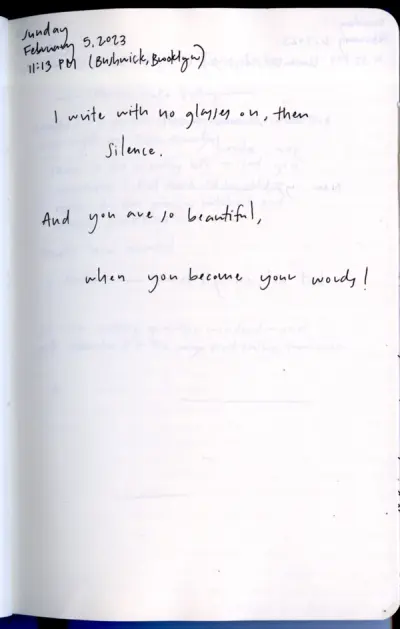 Sunday
February 5, 2023
11:13 PM (Bushwick, Brooklyn)
I write with no glasses on, then
silence.
And you are so beautiful,
when you become your words!